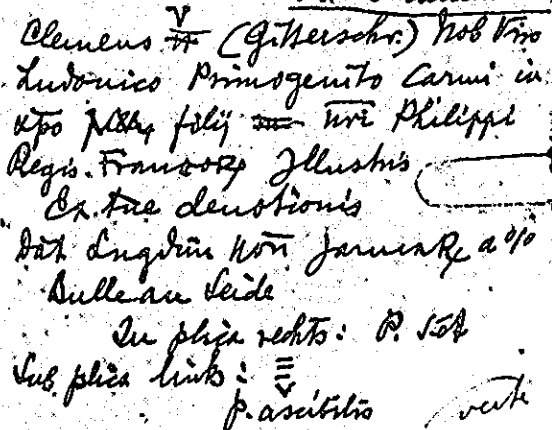 Clemens V (Gitterschr.) Nob Viro
Ludovico Primogenito Carmi in
xpo filij nri Philippi
Regis Francorꝝ Illustris
Ex. tue devotionis
Dat Lugduni Non Januar a° 1°
Bulle an Seide
In plica rechts: P.
Sub plica links:
p. ascibilis verte